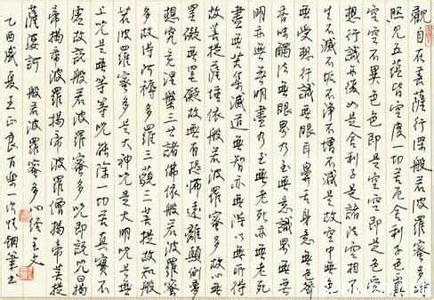 觀自在菩薩行深般若波羅蜜多時
照見五蘊皆空度一切苦厄舍利子色不異
空空不異色色即是空空即是色受
想行識亦復如是舍利子是諸法空相不
生不滅不垢不淨不增不減是故空中無色
無受想行識無眼耳鼻舌身意無色聲
香味觸法無眼界乃至無意識界無無
明亦無無明盡乃至無老死亦無老死
盡無苦集滅道無智亦無得以無所得
故菩提薩埵依般若波羅蜜多故心無
罣礙無罣礙故無有恐怖遠離顛倒夢
想究竟涅槃三世諸佛依般若波羅蜜
多故得阿耨多羅三藐三菩提故知般
若波羅蜜多是大神咒是大明咒是無
上咒是無等等咒能除一切苦真實不
虛故說般若波羅蜜多咒即說咒曰揭
諦揭諦波羅揭諦波羅僧揭諦菩提
薩婆訶 般若波羅蜜多心經全文
乙酉歲夏王正良 鋼筆書